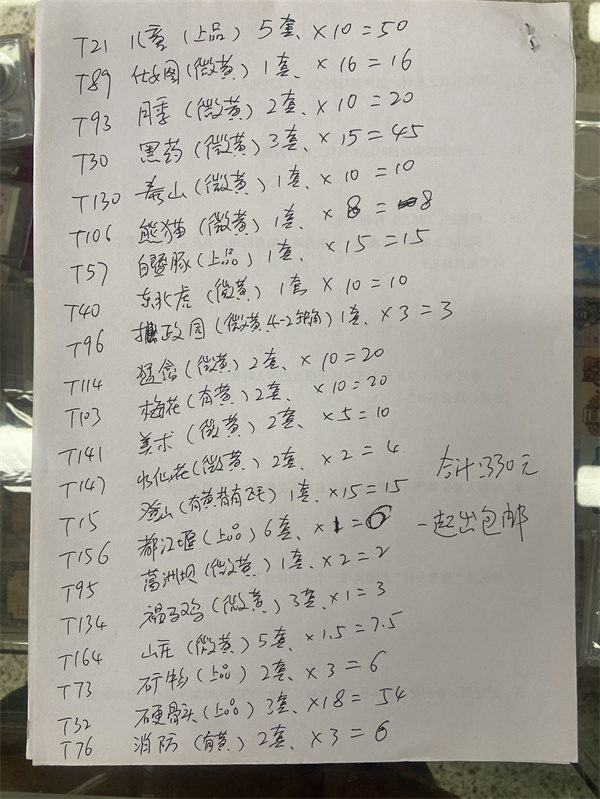 T21 儿童(上品)5套、×10=50
T89 仕女图(微黄)1套、×16=16
T93 月季(微黄)2套、×10=20
T30 黑药(微黄)3套、×15=45
T130 泰山(微黄)1套、×10=10
T106 熊猫(微黄)1套、×8=8
T57 白暨豚(上品)1套、×15=15
T40 东北虎(微黄)1套 ×10=10
T96 拙政园(微黄4-2软角)1套、×3=3
T114 猛禽(微黄)2套、×10=20
T103 梅花(有黄)2套、×10=20
T141 美术(微黄)2套、×5=10
T147 水仙花(微黄)2套、×2=4
T15 登山(有黄背有毛)1套、×15=15
T156 都江堰(上品)6套、×1=6
T95 葛洲坝(微黄)1套、×2=2
T134 褐马鸡(微黄)3套、×1=3
T164 山庄(微黄)5套、×1.5=7.5
T73 矿物(上品)2套、×3=6
T32 石硬骨头(上品)3套、×18=54
T76 消防(有黄)2套、×3=6
合计:330元
一起出包邮